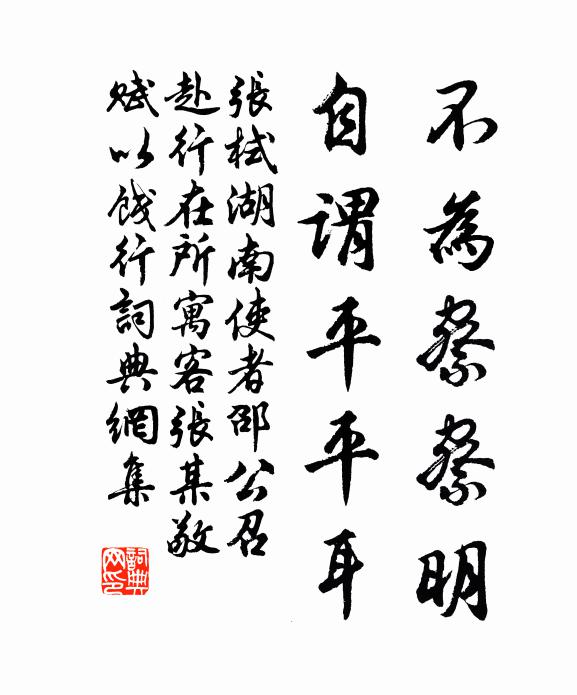 不為察察明
自謂平平耳
張栻湖南使者邵公召
赴行在所寓客張某敬
賦以餞行詞典網集
詞典网印